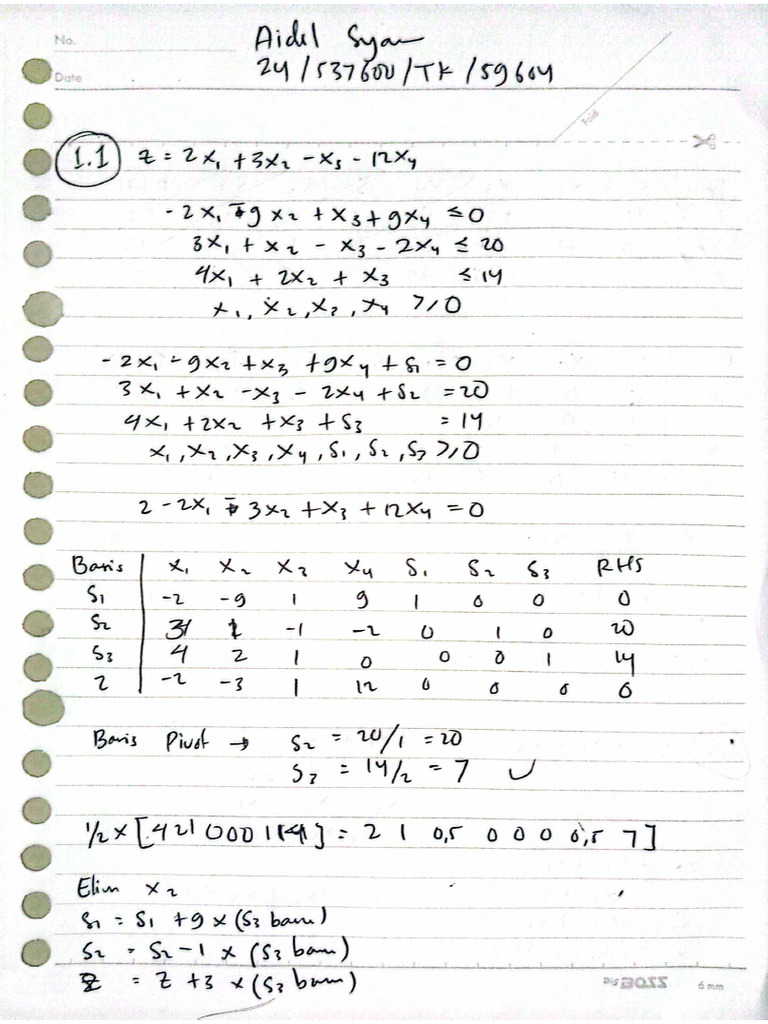 No.
Aidil Syam
Date
24/537600/TK/59604
Fold
1.1 z = 2x₁ + 3x₂ - x₃ - 12x₄
-2x₁ - 9x₂ + x₃ + 9x₄ ≤ 0
3x₁ + x₂ - x₃ - 2x₄ ≤ 20
4x₁ + 2x₂ + x₃ ≤ 14
x₁, x₂, x₃, x₄ ≥ 0
-2x₁ - 9x₂ + x₃ + 9x₄ + S₁ = 0
3x₁ + x₂ - x₃ - 2x₄ + S₂ = 20
4x₁ + 2x₂ + x₃ + S₃ = 14
x₁, x₂, x₃, x₄, S₁, S₂, S₃ ≥ 0
z - 2x₁ - 3x₂ + x₃ + 12x₄ = 0
Baris x₁ x₂ x₃ x₄ S₁ S₂ S₃ RHS
S₁ -2 -9 1 9 1 0 0 0
S₂ 3 1 -1 -2 0 1 0 20
S₃ 4 2 1 0 0 0 1 14
z -2 -3 1 12 0 0 0 0
Baris Pivot → S₂ = 20/1 = 20
S₃ = 14/2 = 7 ✓
1/2 × [4 2 1 0 0 0 1 14] = 2 1 0,5 0 0 0 0,5 7]
Elim x₂
S₁ = S₁ + 9 × (S₃ baru)
S₂ = S₂ - 1 × (S₃ baru)
z = z + 3 × (S₃ baru)
BOSS 6 mm